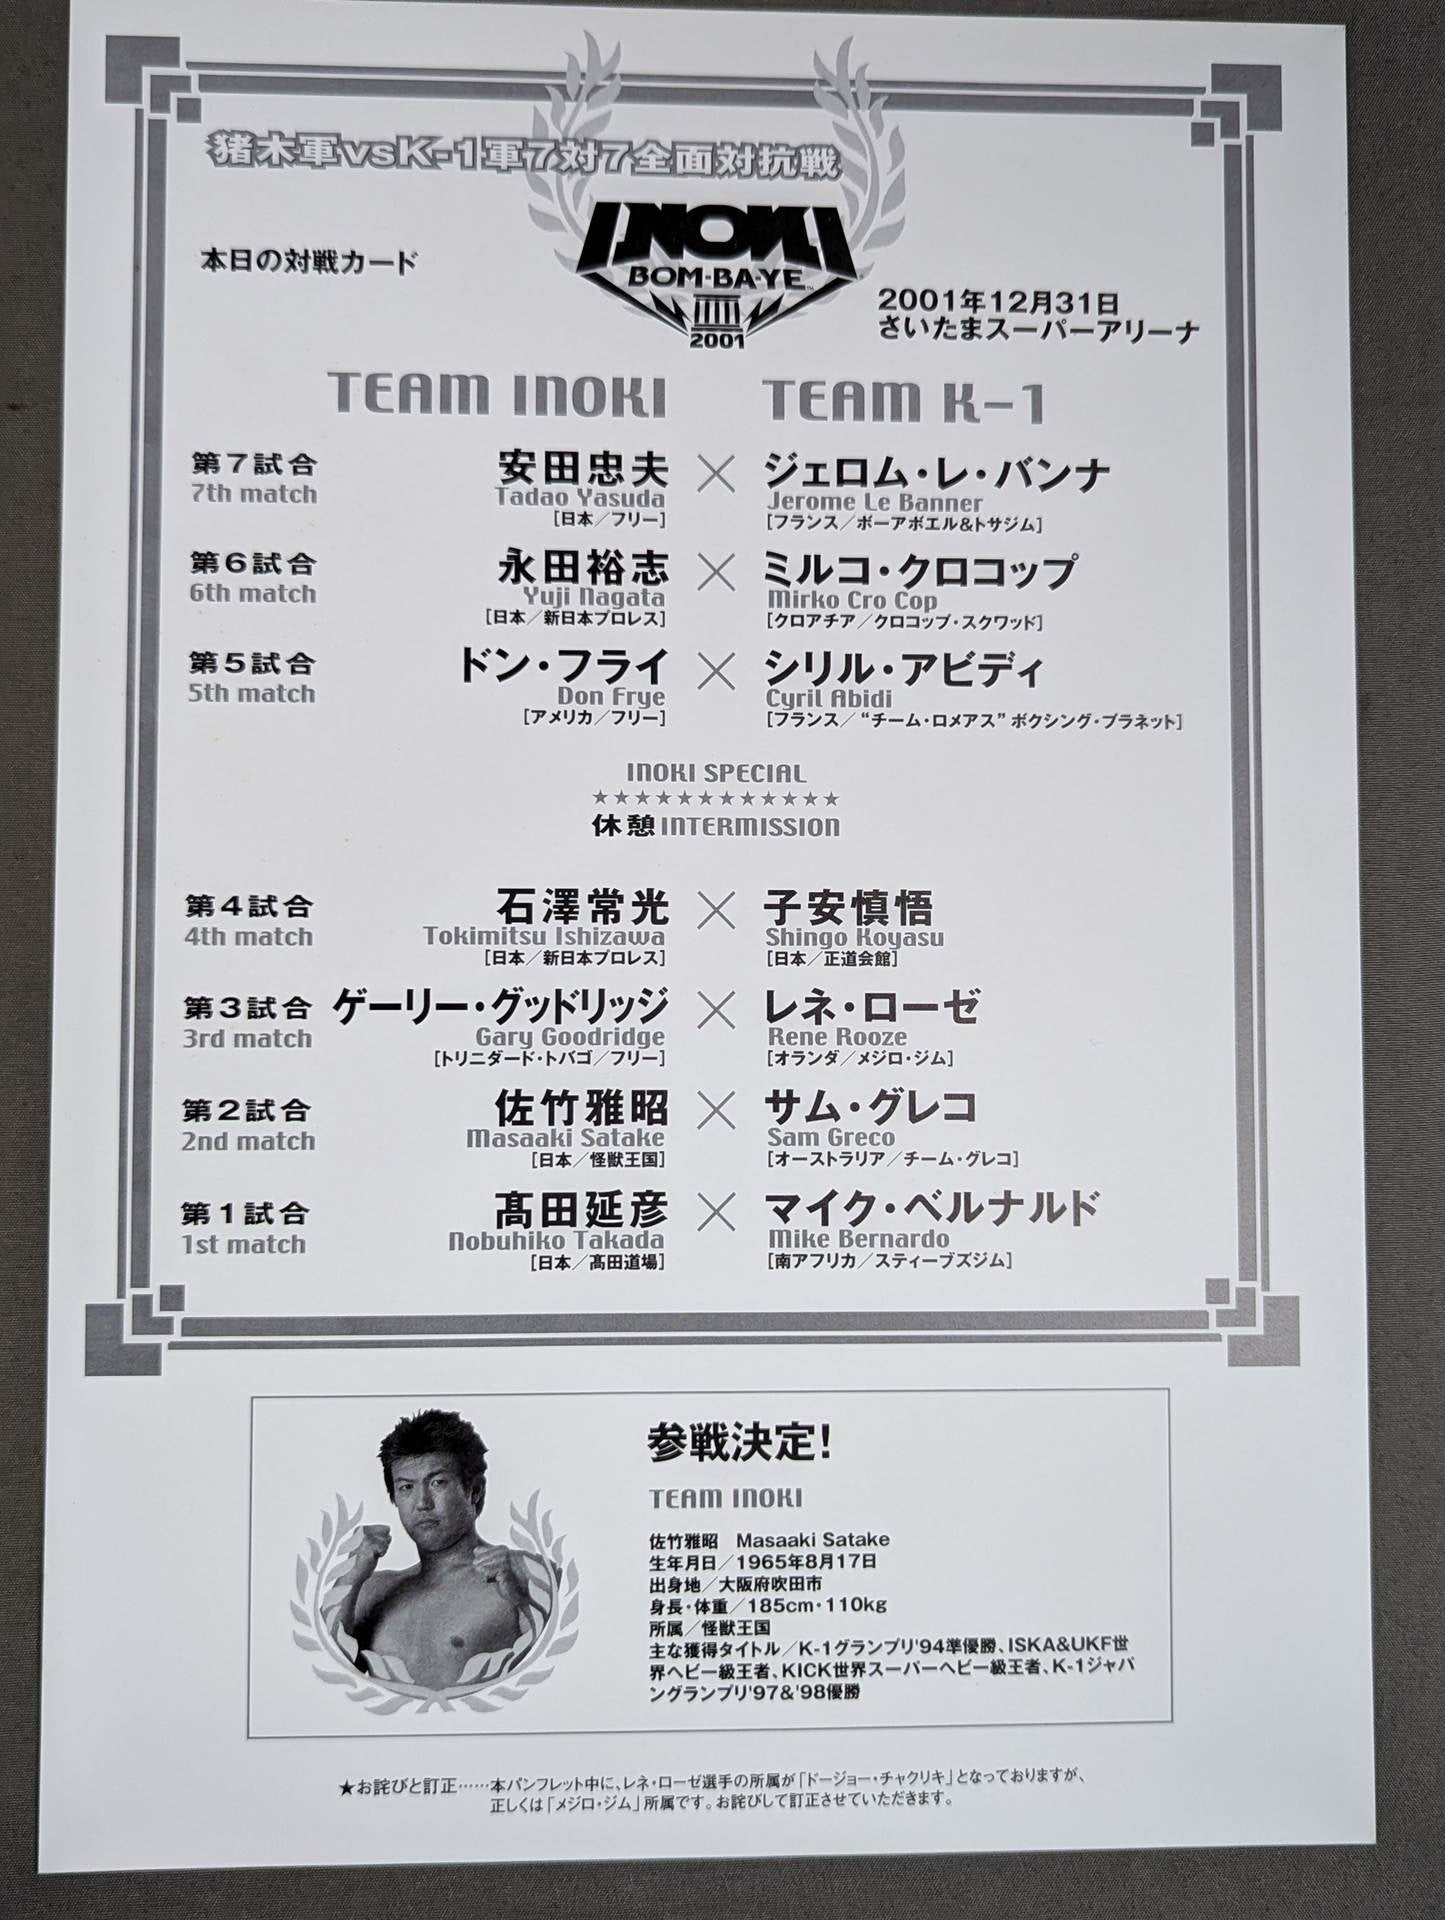 猪木軍vsK-1軍7対7全面対抗戦
INOKI
BOM-BA-YE™
2001
本日の対戦カード
2001年12月31日
さいたまスーパーアリーナ
TEAM INOKI TEAM K-1
第7試合 安田忠夫 × ジェロム・レ・バンナ
7th match Tadao Yasuda Jerome Le Banner
[日本／フリー] [フランス／ボーアボエル&トサジム]
第6試合 永田裕志 × ミルコ・クロコップ
6th match Yuji Nagata Mirko Cro Cop
[日本／新日本プロレス] [クロアチア／クロコップ・スクワッド]
第5試合 ドン・フライ × シリル・アビディ
5th match Don Frye Cyril Abidi
[アメリカ／フリー] [フランス／“チーム・ロメアス” ボクシング・プラネット]
INOKI SPECIAL
★★★★★★★★★★★★
休憩 INTERMISSION
第4試合 石澤常光 × 子安慎悟
4th match Tokimitsu Ishizawa Shingo Koyasu
[日本／新日本プロレス] [日本／正道会館]
第3試合 ゲーリー・グッドリッジ × レネ・ローゼ
3rd match Gary Goodridge Rene Rooze
[トリニダード・トバゴ／フリー] [オランダ／メジロ・ジム]
第2試合 佐竹雅昭 × サム・グレコ
2nd match Masaaki Satake Sam Greco
[日本／怪獣王国] [オーストラリア／チーム・グレコ]
第1試合 髙田延彦 × マイク・ベルナルド
1st match Nobuhiko Takada Mike Bernardo
[日本／髙田道場] [南アフリカ／スティーブズジム]
参戦決定!
TEAM INOKI
佐竹雅昭 Masaaki Satake
生年月日／1965年8月17日
出身地／大阪府吹田市
身長・体重／185cm・110kg
所属／怪獣王国
主な獲得タイトル／K-1グランプリ'94準優勝、ISKA&UKF世
界ヘビー級王者、KICK世界スーパーヘビー級王者、K-1ジャパ
ングランプリ'97&'98優勝
★お詫びと訂正……本パンフレット中に、レネ・ローゼ選手の所属が「ドージョー・チャクリキ」となっておりますが、
正しくは「メジロ・ジム」所属です。お詫びして訂正させていただきます。